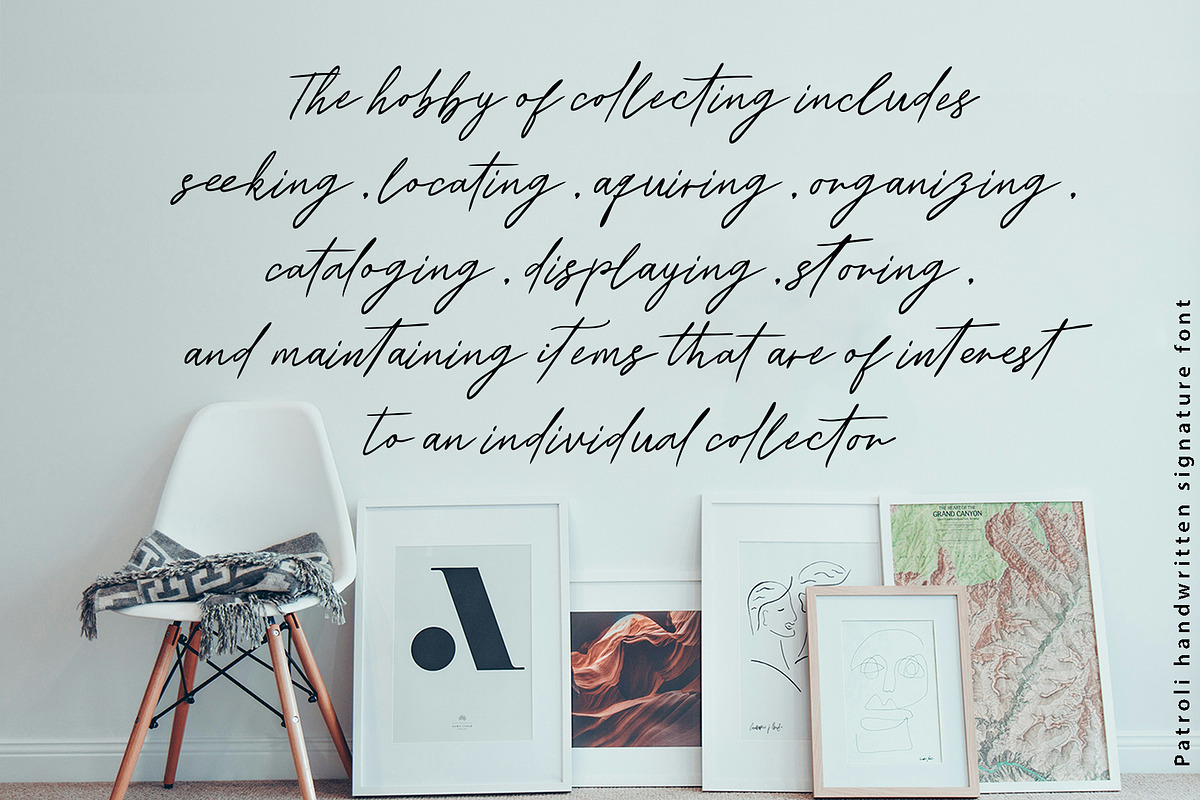 The hobby of collecting includes
seeking , locating , aquiring , organizing ,
cataloging , displaying , storing ,
and maintaining items that are of interest
to an individual collector
Patroli handwritten signature font
A
THE HEART OF THE
GRAND CANYON